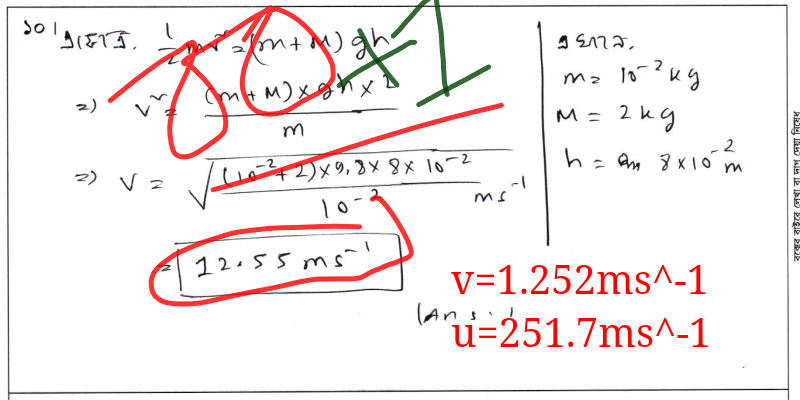 ১০। এক্ষেত্রে, ½mv² = (m+M)gh
=) v² = (m+M)×gh×2 / m
=) v = √((10⁻²+2)×9.8×8×10⁻² / 10⁻²) ms⁻¹
= 12.55 ms⁻¹
(Ans.)
এখানে,
m = 10⁻² kg
M = 2 kg
h = 8×10⁻² m
-1
v=1.252ms^-1
u=251.7ms^-1
বক্সের বাইরে লেখা বা দাগ দেয়া নিষেধ